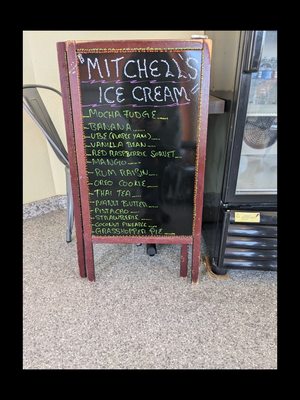 "MITCHELL'S
ICE CREAM"
MOCHA FUDGE
BANANA
UBE (PURPLE YAM)
VANILLA BEAN
RED RASPBERRIE SORBET
MANGO
RUM RAISIN
OREO COOKIE
THAI TEA
PEANUT BUTTER
PISTACHO
STRAWBERRIE
COCONUT PINEAPPLE
GRASSHOPPER PIE